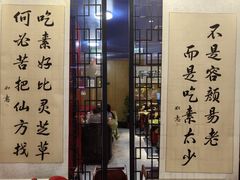 不是容颜易老
而是吃素太少
如意
吃素好比灵芝草
何必苦把仙方找
如意